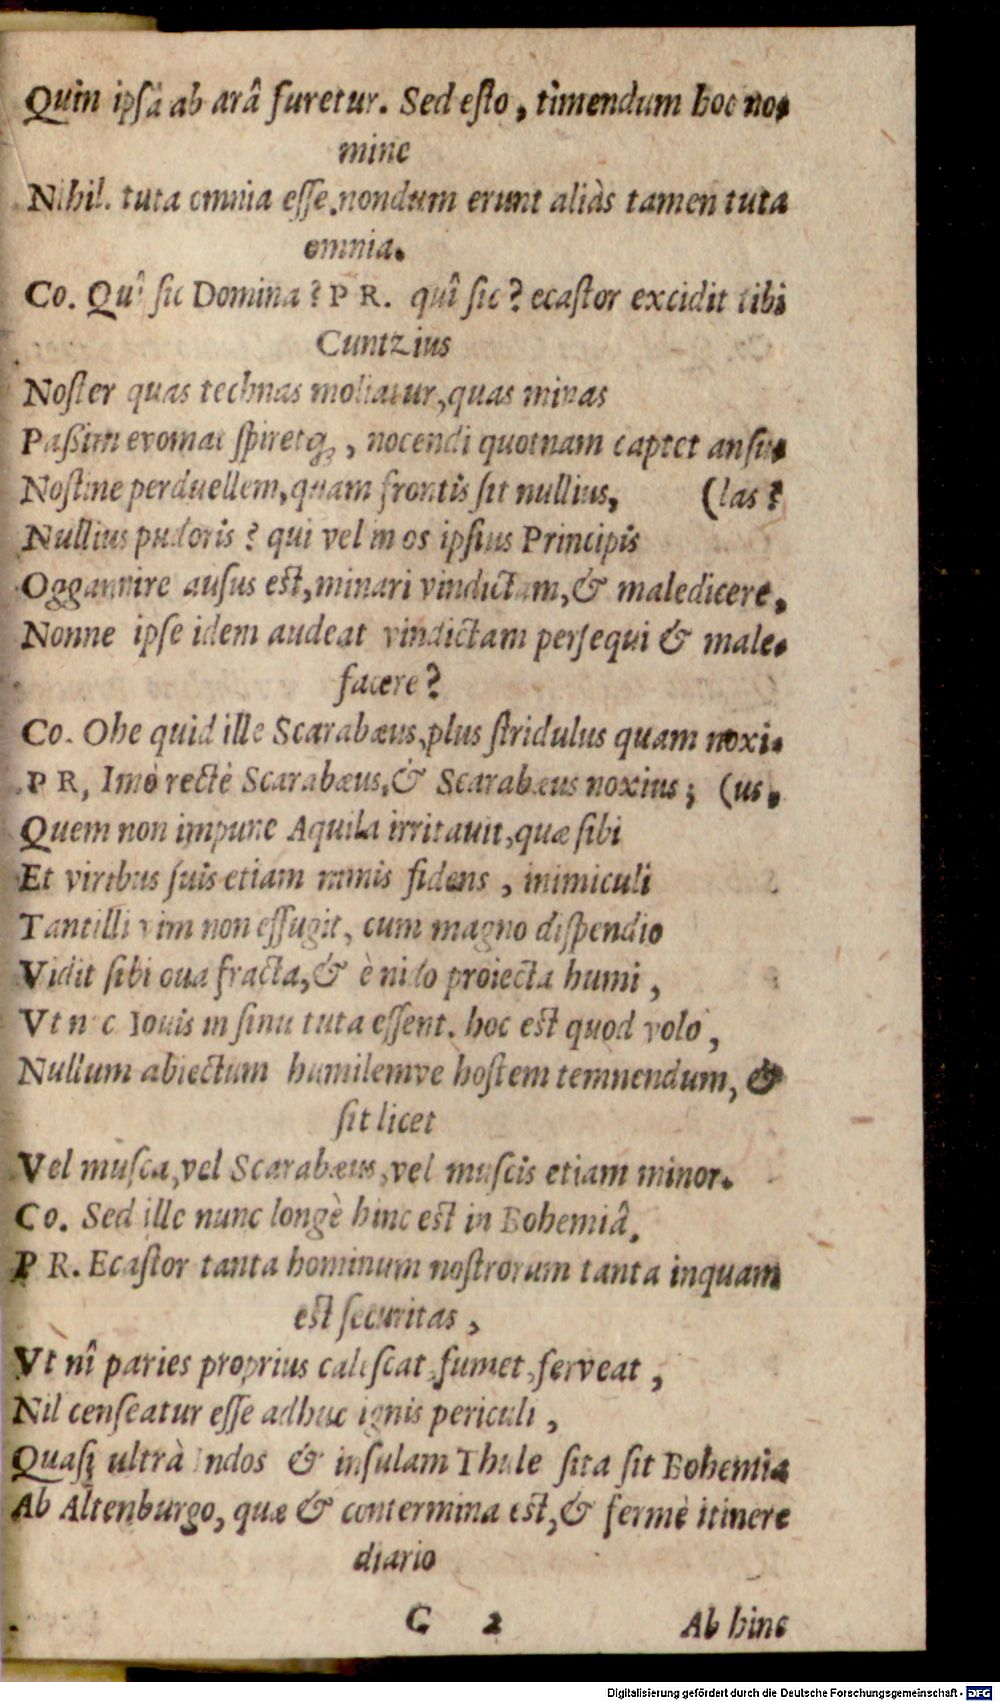 Quin ipsâ ab arâ furetur. Sed esto, timendum hoc no-
mine
Nihil. tuta omnia esse. nondum erunt aliàs tamen tuta
omnia.
Co. Quî sic Domina? PR. quî sic? ecastor excidit tibi
Cuntzius
Noster quas technas moliatur, quas minas
Paßim evomat spiretq́;, nocendi quotnam captet ansu-
Nostine perduellem, quam frontis sit nullius, (las?
Nullius pudoris? qui vel in os ipsius Principis
Oggannire ausus est, minari vindictam, & maledicere,
Nonne ipse idem audeat vindictam persequi & male-
facere?
Co. Ohe quid ille Scarabæus, plus stridulus quam noxi-
PR, Imò rectè Scarabæus, & Scarabæus noxius; (us.
Quem non impune Aquila irritavit, quæ sibi
Et viribus suis etiam nimis fidens, inimiculi
Tantilli vim non effugit, cum magno dispendio
Vidit sibi oua fracta, & è nido proiecta humi,
Vt nec Iouis in sinu tuta essent. hoc est quod volo,
Nullum abiectum humilemve hostem temnendum, &
sit licet
Vel musca, vel Scarabæus, vel muscis etiam minor.
Co. Sed ille nunc longè hinc est in Bohemiâ.
PR. Ecastor tanta hominum nostrorum tanta inquam
est securitas,
Vt nî paries proprius calescat, fumet, ferveat,
Nil censeatur esse adhuc ignis periculi,
Quasi ultrà Indos & insulam Thule sita sit Bohemia
Ab Altenburgo, quæ & contermina est, & fermè itinere
diario
C 2 Ab hinc
Digitalisierung gefördert durch die Deutsche Forschungsgemeinschaft - DFG